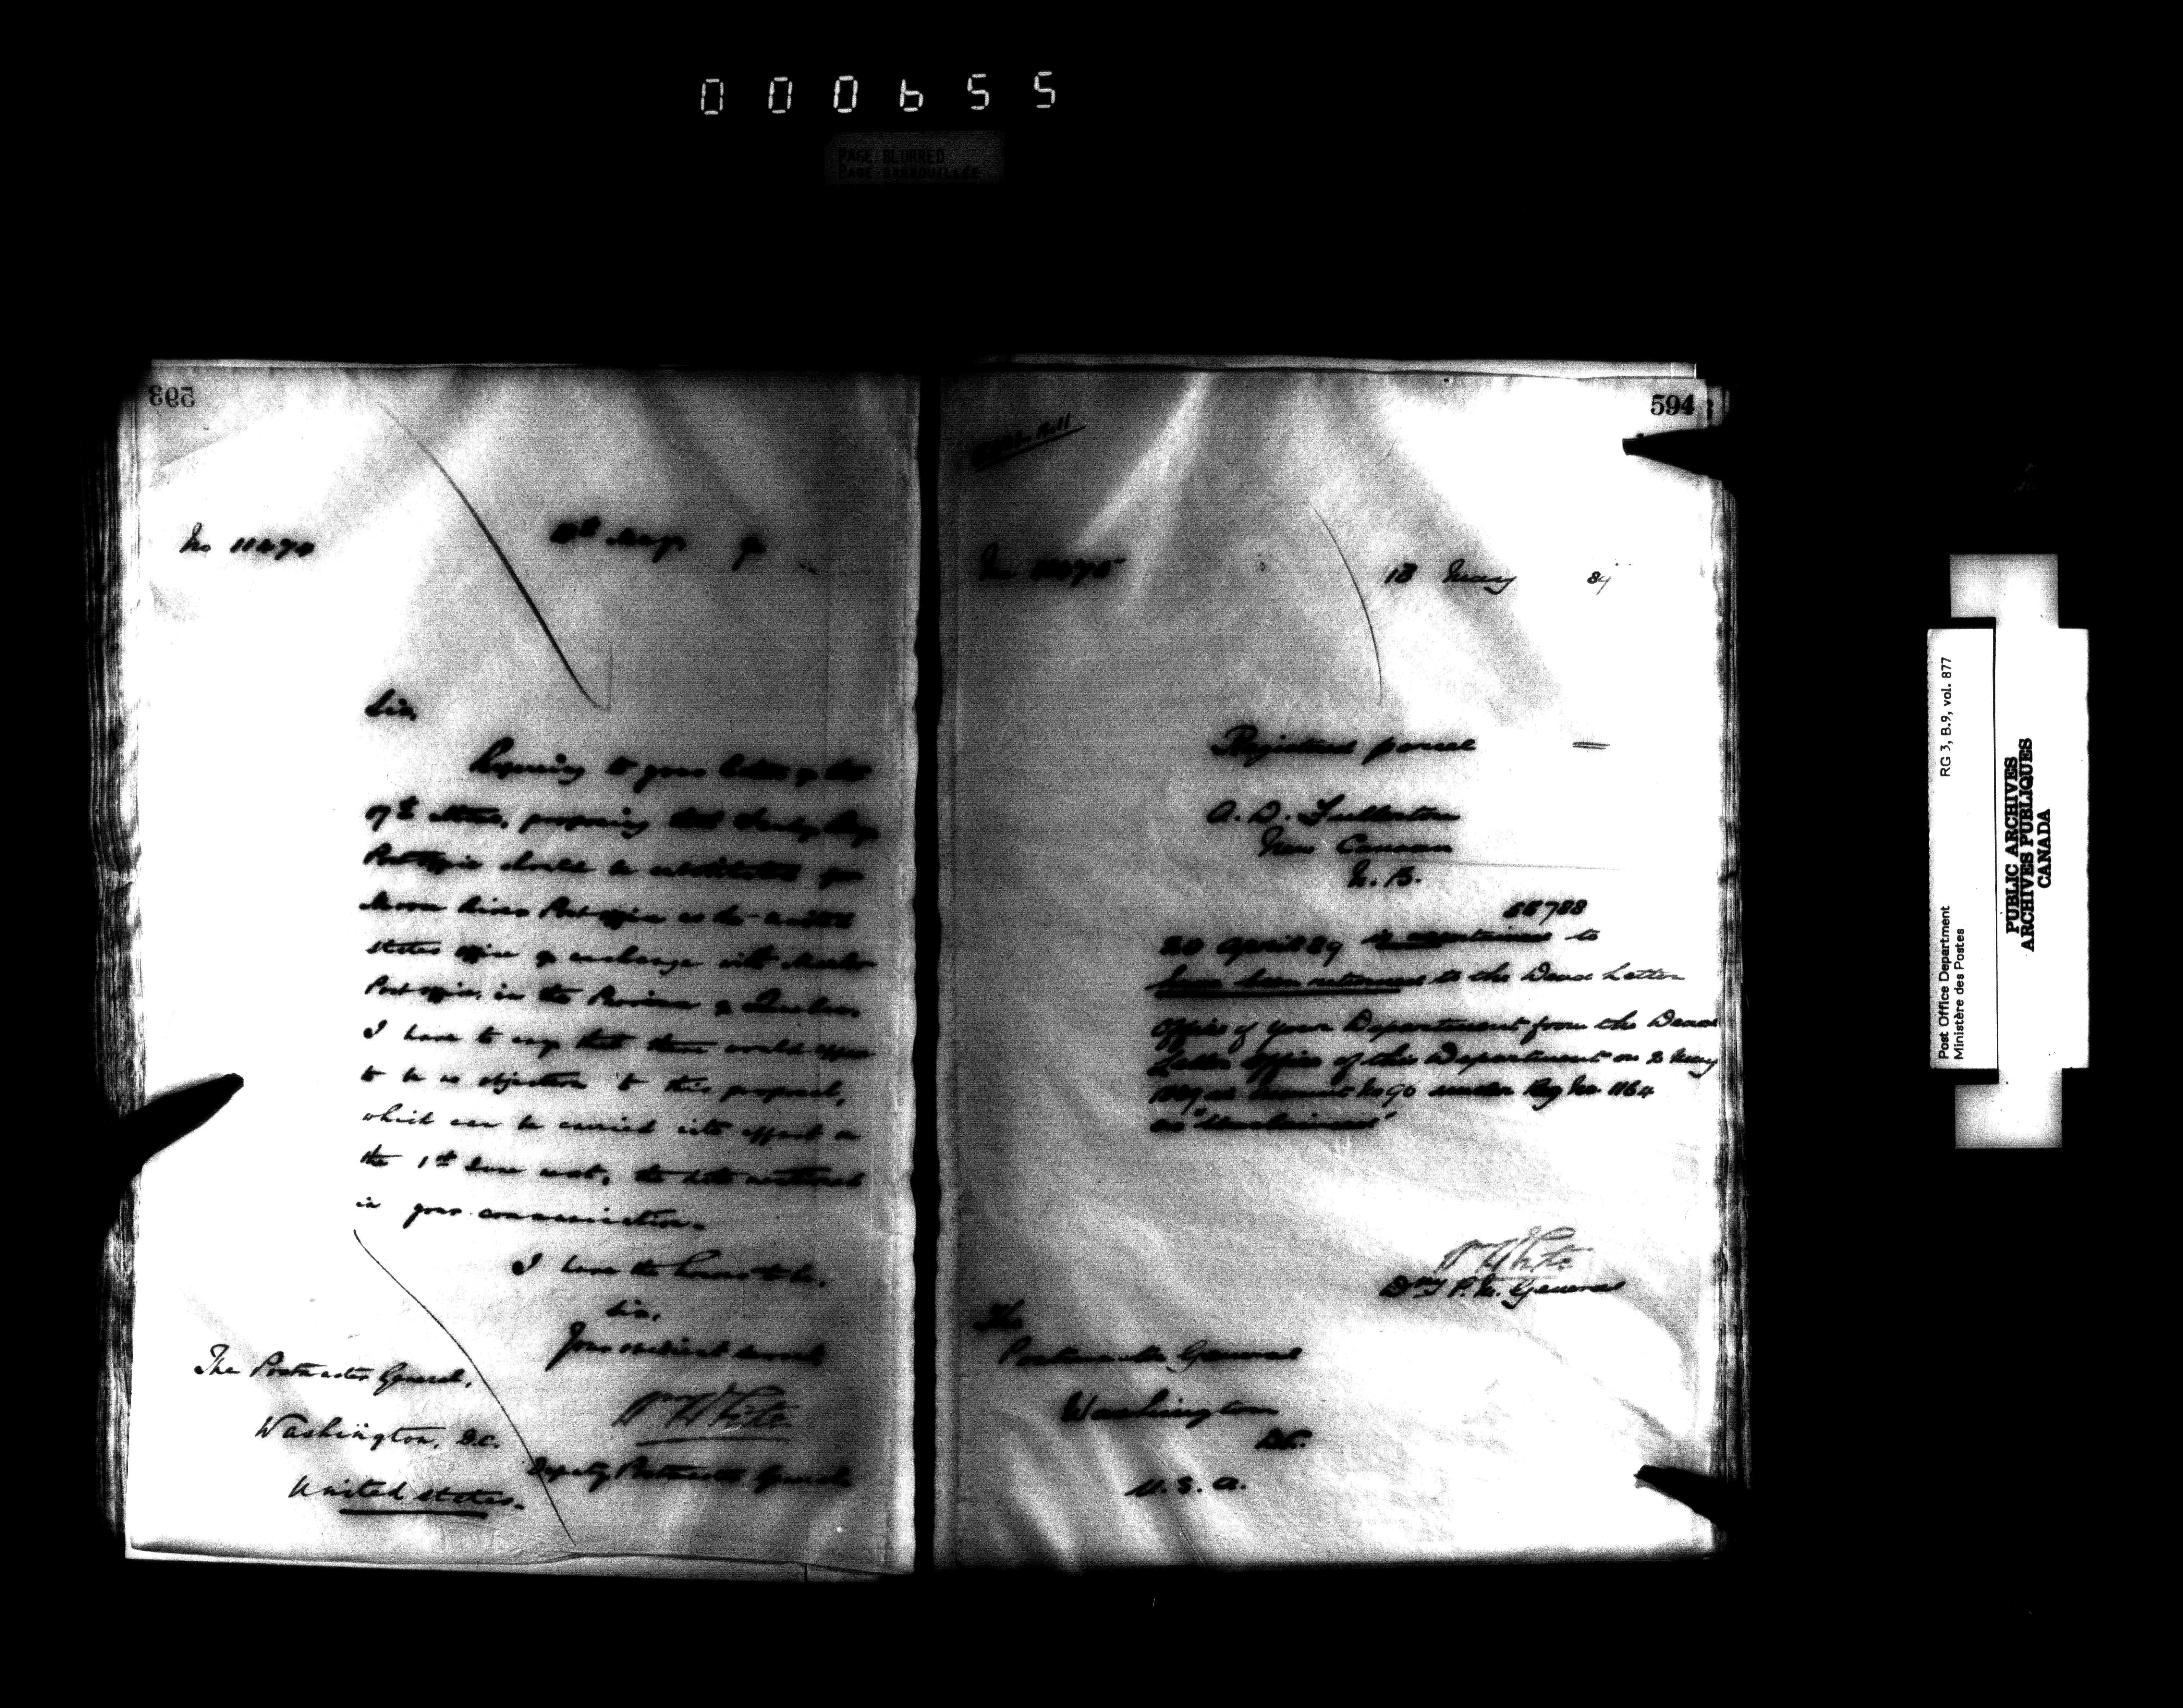 000655
PAGE BLURRED
PAGE BARBOUILLÉE
593
No 11474
18th May 9
Sir,
Referring to your letter of the
17th proposing that Bay
Post office should be substituted for
Moose River Post office as the United
States office of exchange with
Post office, in the Province of Quebec,
I have to say that there would appear
to be no objection to this proposal,
which can be carried into effect on
the 1st June next, the date mentioned
in your communication.
I have the honor to be,
Sir,
Your obedient servant,
Wm White
Deputy Postmaster General.
The Postmaster General,
Washington, D.C.
United States.
594
No 11475
18 May 89
Registered parcel =
A. D. Fullerton
New Canaan
N. B.
55788
20 April 89 is ascertained to
have been returned to the Dead Letter
Office of your Department from the Dead
Letter Office of this Department on 2 May
1889 as No 96 under Reg No. 1164
as "Unclaimed"
Wm White
Dpy P. M. General
The
Postmaster General
Washington
D.C.
U. S. A.
Post Office Department RG 3, B.9, vol. 877
Ministère des Postes
PUBLIC ARCHIVES
ARCHIVES PUBLIQUES
CANADA